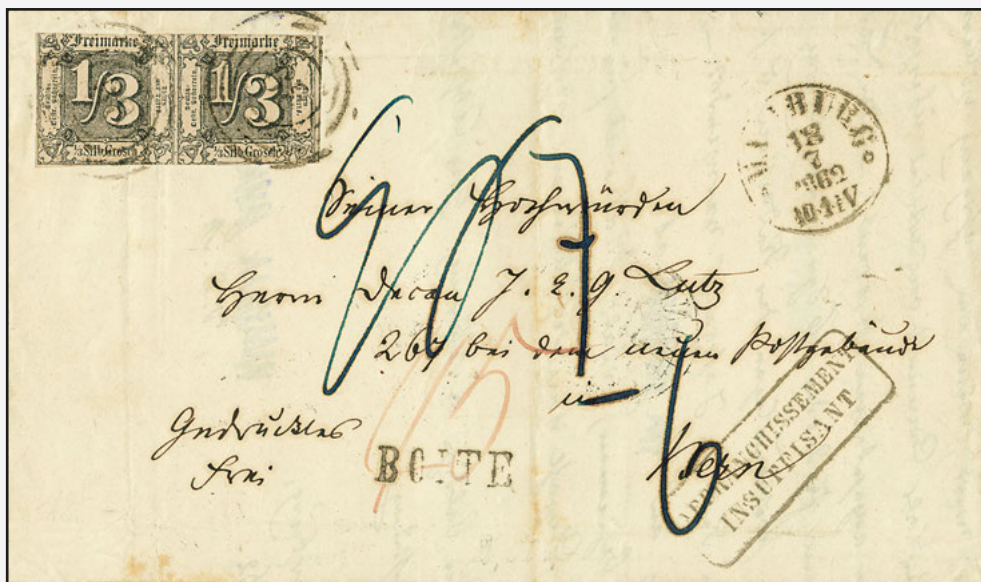 Freimarke Freimarke
1/3 1/3
⅓ Silb. Grosch. ⅓ Silb. Grosch.
18
7
1862
Seiner Hochwürden
Herrn Decan J. E. G. Lutz
267 bei dem neuen Postgebäude
in
Bern
Gedrucktes
frei
BOITE
AFFRANCHISSEMENT
INSUFFISANT